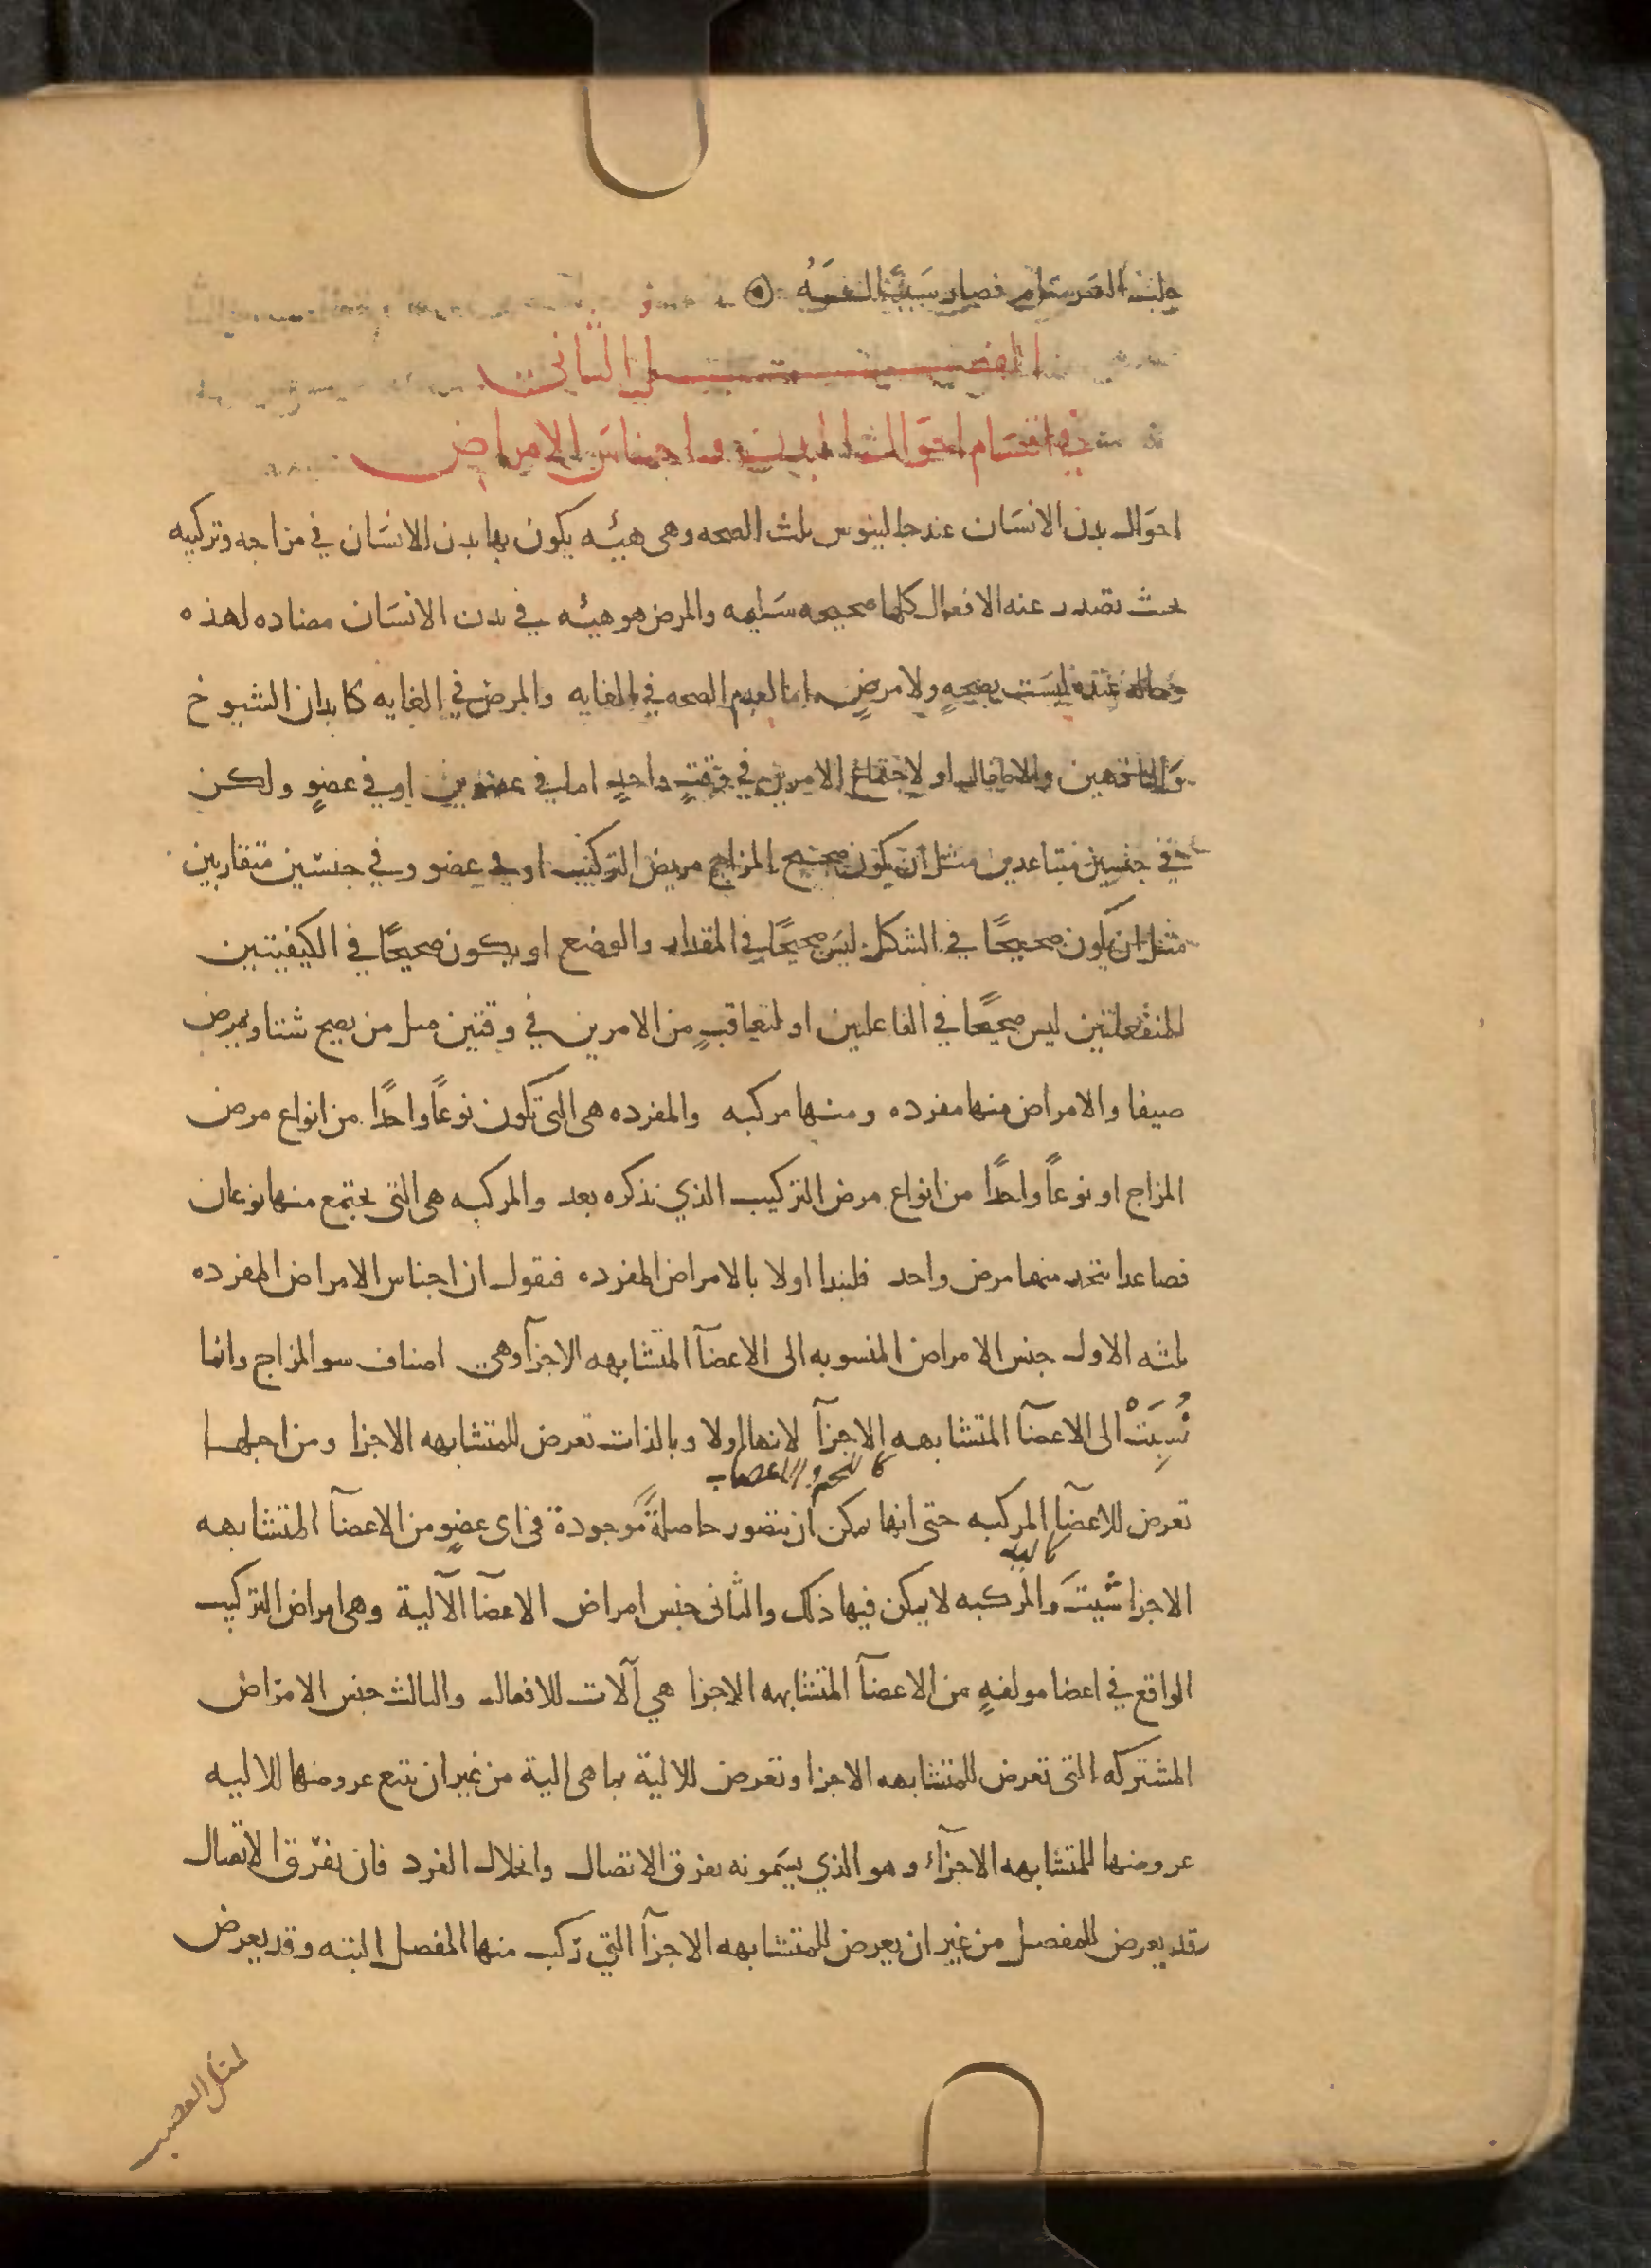 فصار سَبَبًا
الفصل الثانى
في اقسَام احوَال البدن واجناسَ الامراض
احوَال بدن الانسَان عند جالينوس ثلث الصحه وهى هيئه يكون بها بدن الانسَان في مزاجه وتركيبه
بحيث تصدر عنه الافعال كلها صحيحه سَليمه والمرض هو هيئه في بدن الانسَان مضاده لهذه
وحاله عنده ليسَت بصحهٍ ولا مرضٍ اما لعدم الصحه في الغايه والمرض في الغايه كابدان الشيوخ
وَالناقهين والاطفال او لاجتماع الامرين في وَقتٍ واحدٍ اما في عضوين او في عضوٍ ولكن
في جنسين متباعدين مثل ان يكون صحيح المزاج مريض التركيب او في عضو وفي جنسَين متقاربين
مثل ان يكون صحيحًا في الشكل ليسَ صحيحًا في المقدار والوضع او يكون صحيحًا في الكيفيتين
المنفعلتين ليس صحيحًا في الفاعلين او لتعاقبٍ من الامرين في وقتين مثل من يصح شتا ويمرض
صيفا والامراض منها مفرده ومنها مركبه والمفرده هى التى تكون نوعًا واحدًا من انواع مرض
المزاج او نوعًا واحدًا من انواع مرض التركيب الذي نذكره بعد والمركبه هى التى يجتمع منها نوعان
فصاعدا يتحد منها مرض واحد فلنبدا اولا بالامراض المفرده فنقول ان اجناس الامراض المفرده
ثلثه الاول جنس الامراض المنسوبه الى الاعضآ المتشابهه الاجزآ وهى اصناف سو المزاج وانما
نُسِبَتْ الى الاعضآ المتشابهه الاجزآ لانها اولا وبالذات تعرض للمتشابهه الاجزا ومن اجلها
كاللحم والاعصاب
تعرض للاعضآ المركبه حتى انها يمكن ان تتصور حاصلةً موجودة في اى عضوٍ من الاعضآ المتشابهه
كاليد
الاجزا شيتَ والمركبه لا يمكن فيها ذلك والثانى جنس امراض الاعضآ الآلية وهى امراض التركيب
الواقع في اعضا مولفهٍ من الاعضآ المتشابهه الاجزا هي آلات للافعال والثالث جنس الامرَاض
المشتركه التى تعرض للمتشابهه الاجزا وتعرض للالية بما هى الية من غير ان يتبع عروضها للاليه
عروضها للمتشابهه الاجزآء وهو الذي يسَمونه تفرق الاتصال وانحلال الفرد فان تفرّق الاتصال
قد يعرض للمفصل من غير ان يعرض للمتشابهه الاجزآ التي ركب منها المفصل البته وقد يعرض
لمثل العصب